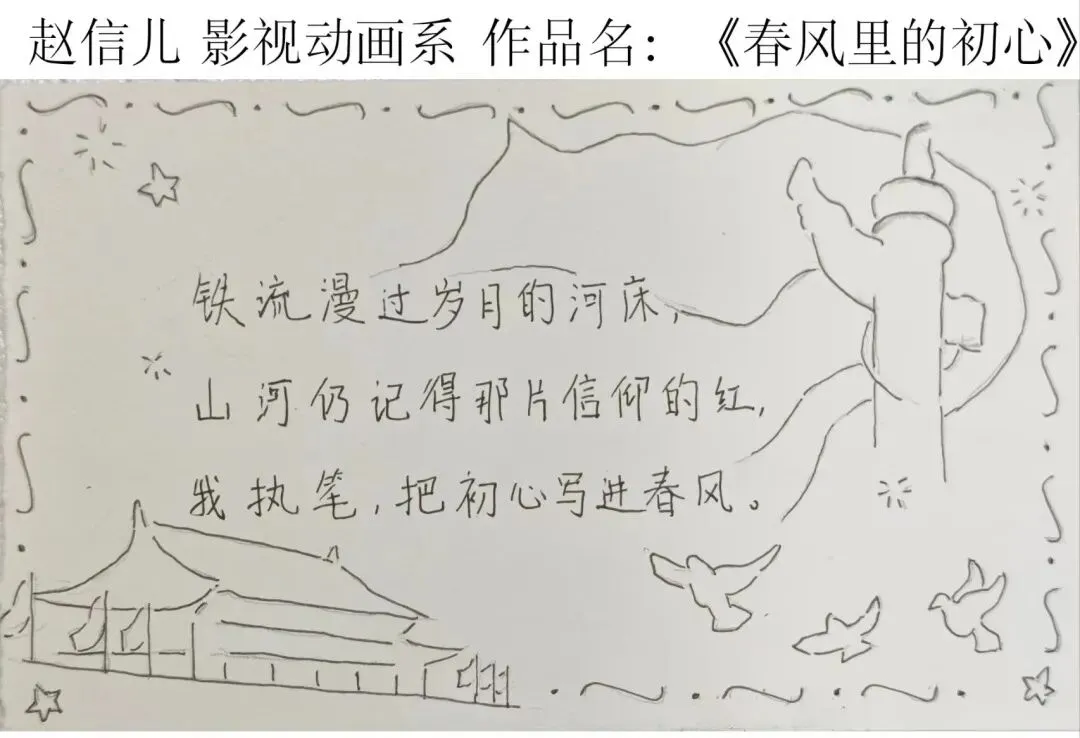 赵信儿 影视动画系 作品名：《春风里的初心》
铁流漫过岁月的河床，
山河仍记得那片信仰的红，
我执笔，把初心写进春风。